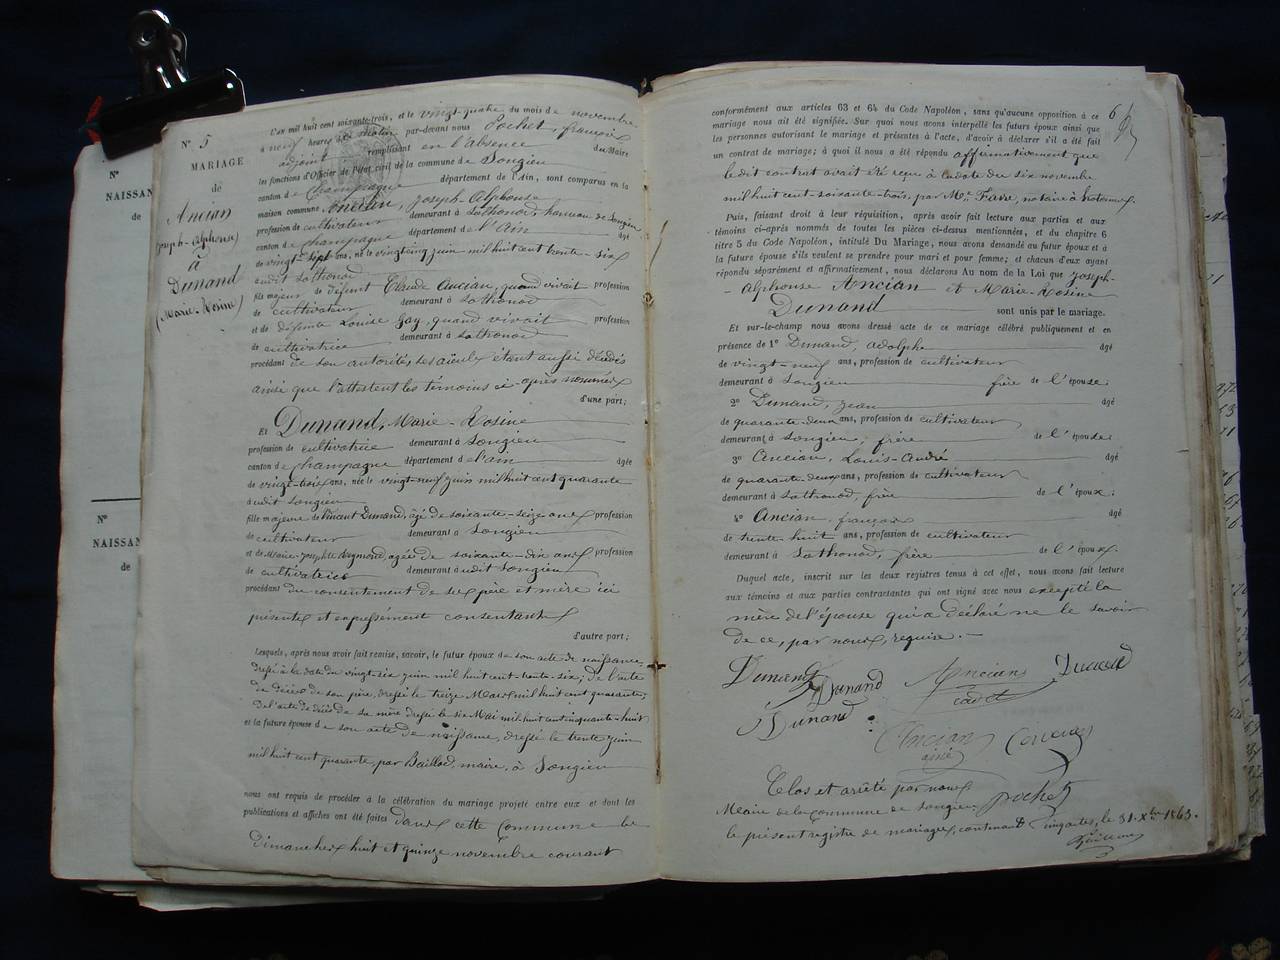 N° 5
MARIAGE
de
Ancian
(Joseph-Alphonse)
à
Dunand
(Marie-Rosine)
N°
NAISSAN
de
N°
NAISSAN
de
L'an mil huit cent soixante-trois, et le vingt-quatre du mois de novembre
à neuf heures du matin par-devant nous Pochet, françois
adjoint remplissant en l'absence du Maire
les fonctions d'Officier de l'état civil de la commune de Songieu
canton de Champagne département de l'Ain, sont comparus en la
maison commune, Ancian, Joseph-Alphonse
profession de cultivateur demeurant à Sothonod, hameau de Songieu
canton de Champagne département de l'Ain âgé
de vingt-sept ans, né le vingt-cinq juin mil huit cent trente-six
audit Sothonod
fils majeur de défunt Claude Ancian, quand vivait profession
de cultivateur demeurant à Sothonod
et de défunte Louise Gay, quand vivait profession
de cultivatrice demeurant à Sothonod
procédant de son autorité, ses aïeulx étant aussi décédés
ainsi que l'attestent les témoins ci-après nommés
d'une part;
Et Dunand, Marie-Rosine
profession de cultivatrice demeurant à Songieu
canton de Champagne département de l'ain âgée
de vingt-trois ans, née le vingt-neuf juin mil huit cent quarante
audit Songieu
fille majeure de Vincent Dunand, âgé de soixante-seize ans profession
de cultivateur demeurant à Songieu
et de Marie-Josephte Aymond, agée de soixante-dix ans profession
de cultivatrice demeurant audit Songieu
procédant du consentement de ses père et mère ici
présents et expressément consentants
d'autre part;
Lesquels, après nous avoir fait remise, savoir, le futur époux de son acte de naissance,
dressé à la date du vingt-six juin mil huit cent trente-six; de l'acte
de décès de son père, dressé le treize Mars mil huit cent quarante;
de l'acte de décès de sa mère dressé le six Mai mil huit cent cinquante-huit
et la future épouse d e son acte de naissance, dressé le trente juin
mil huit cent quarante, par Baillod, maire, à Songieu
nous ont requis de procéder à la célébration du mariage projeté entre eux et dont les
publications et affiches ont été faites dans cette Commune les
Dimanches huit et quinze novembre courant
6
conformément aux articles 63 et 64 du Code Napoléon, sans qu'aucune opposition à ce
mariage nous ait été signifiée. Sur quoi nous avons interpellé les futurs époux ainsi que
les personnes autorisant le mariage et présentes à l'acte, d'avoir à déclarer s'il a été fait
un contrat de mariage; à quoi il nous a été répondu affirmativement que
le dit contrat avait été reçu à la date du six novembre
mil huit cent-soixante-trois, par Me Favre, notaire à hotonnes
Puis, faisant droit à leur réquisition, après avoir fait lecture aux parties et aux
témoins ci-après nommés de toutes les pièces ci-dessus mentionnées, et du chapitre 6
titre 5 du Code Napoléon, intitulé Du Mariage, nous avons demandé au futur époux et à
la future épouse s'ils veulent se prendre pour mari et pour femme; et chacun d'eux ayant
répondu séparément et affirmativement, nous déclarons Au nom de la Loi que Joseph-
-Alphonse Ancian et Marie-Rosine
Dunand sont unis par le mariage.
Et sur-le-champ nous avons dressé acte de ce mariage célébré publiquement et en
présence de 1° Dunand, adolphe âgé
de vingt-neuf ans, profession de cultivateur
demeurant à Songieu frère de l'épouse
2° Dunand, jean âgé
de quarante-deux ans, profession de cultivateur
demeurant à Songieu, frère de l'épouse
3° Ancian, Louis-André
de quarante deux ans, profession de cultivateur
demeurant à Sothonod, frère de l'époux;
4° Ancian, françois âgé
de trente huit ans, profession de cultivateur
demeurant à Sothonod, frère de l'époux.
Duquel acte, inscrit sur les deux registres tenus à cet effet, nous avons fait lecture
aux témoins et aux parties contractantes qui ont signé avec nous excepté la
mère de l'épouse qui a déclaré ne le savoir
de ce, par nous, requise.-
Dunand Ancian Dunand
Dunand cadet
Dunand
Ancian Ancian
ainé
Clos et arrêté par nous
Maire de la Commune de Songieu Pochet
le présent registre de mariages, contenant cinq actes, le 31 Xbre 1863.